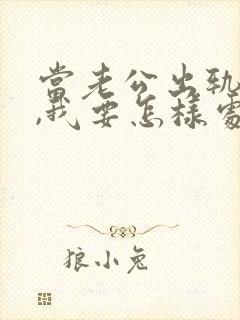 當老公出軌
,我要怎樣處
狼小兔